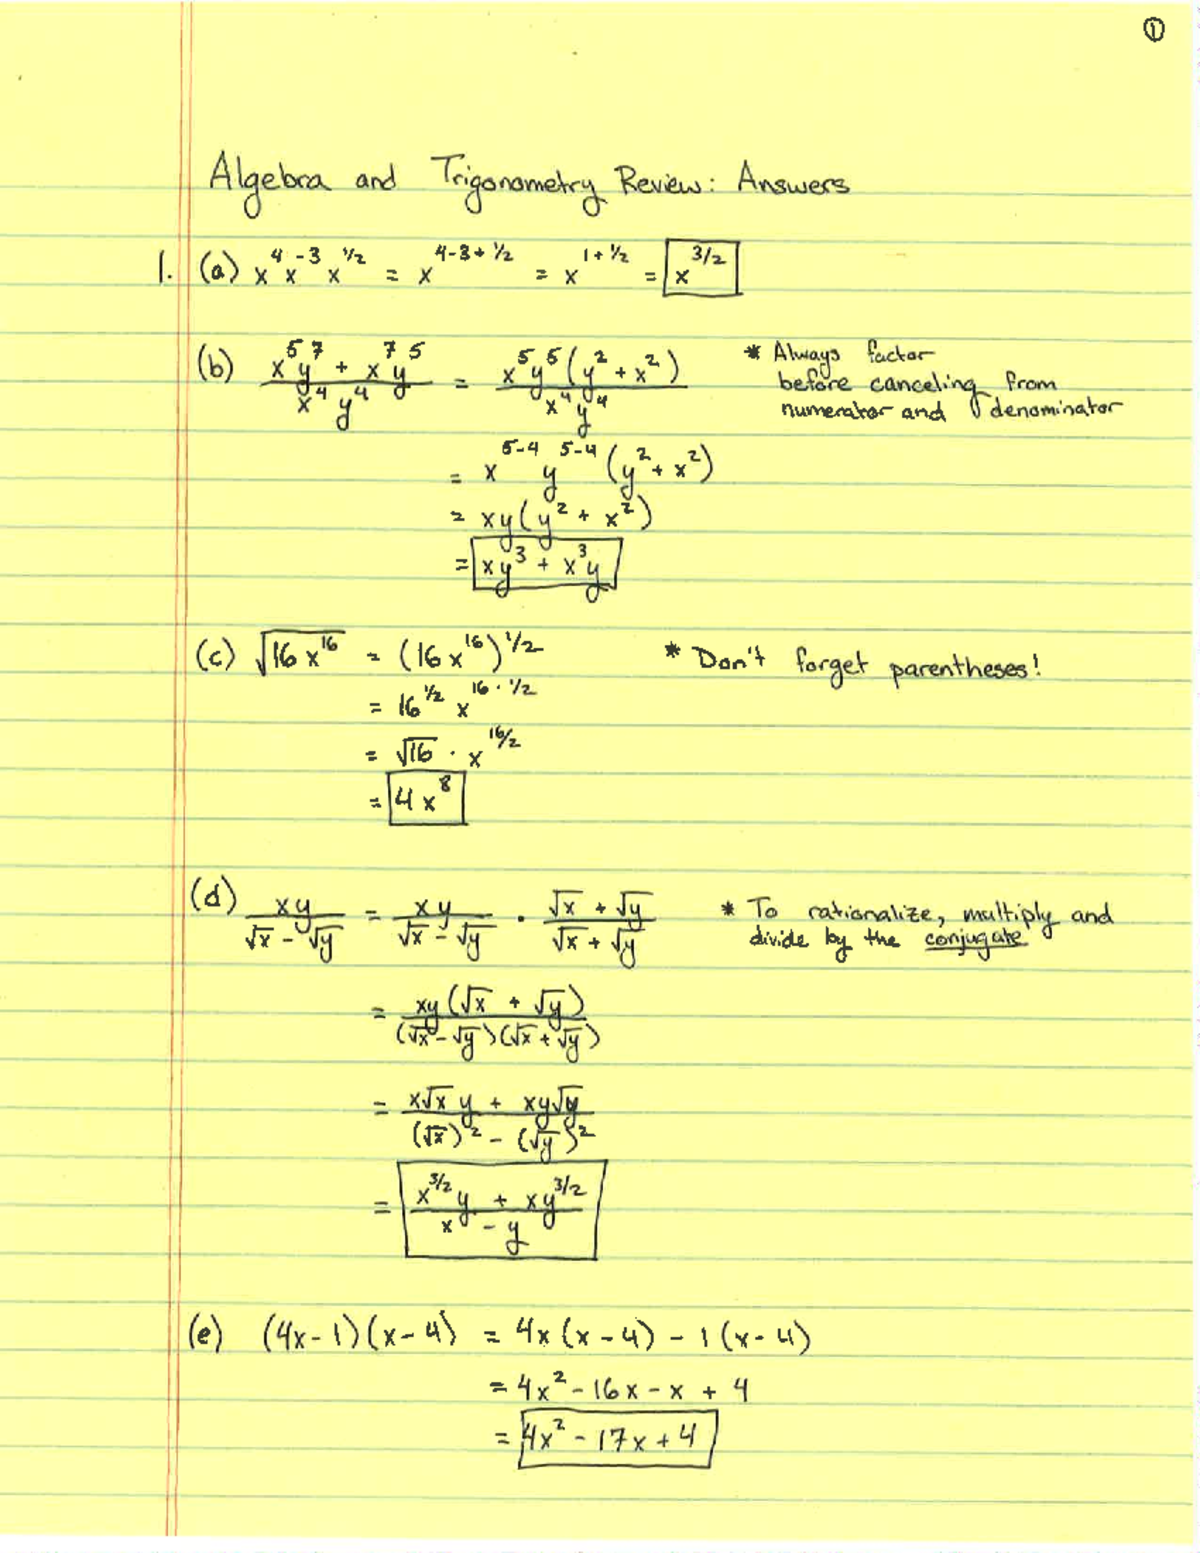 ①
Algebra and Trigonometry Review: Answers
1. (a) x⁴ x⁻³ x^(1/2) = x^(4-3+1/2) = x^(1+1/2) = x^(3/2)
(b) (x⁵y⁷ + x⁷y⁵)/(x⁴y⁴) = x⁵y⁵(y² + x²)/(x⁴y⁴) * Always factor
before canceling from
numerator and denominator
= x^(5-4) y^(5-4) (y² + x²)
= xy(y² + x²)
= xy³ + x³y
(c) √(16x¹⁶) = (16x¹⁶)^(1/2) * Don't forget parentheses!
= 16^(1/2) x^(16·1/2)
= √16 · x^(16/2)
= 4x⁸
(d) xy/(√x - √y) = xy/(√x - √y) · (√x + √y)/(√x + √y) * To rationalize, multiply and
divide by the conjugate
= xy(√x + √y)/((√x - √y)(√x + √y))
= (x√x y + xy√y)/((√x)² - (√y)²)
= (x^(3/2)y + xy^(3/2))/(x - y)
(e) (4x-1)(x-4) = 4x(x-4) - 1(x-4)
= 4x² - 16x - x + 4
= 4x² - 17x + 4